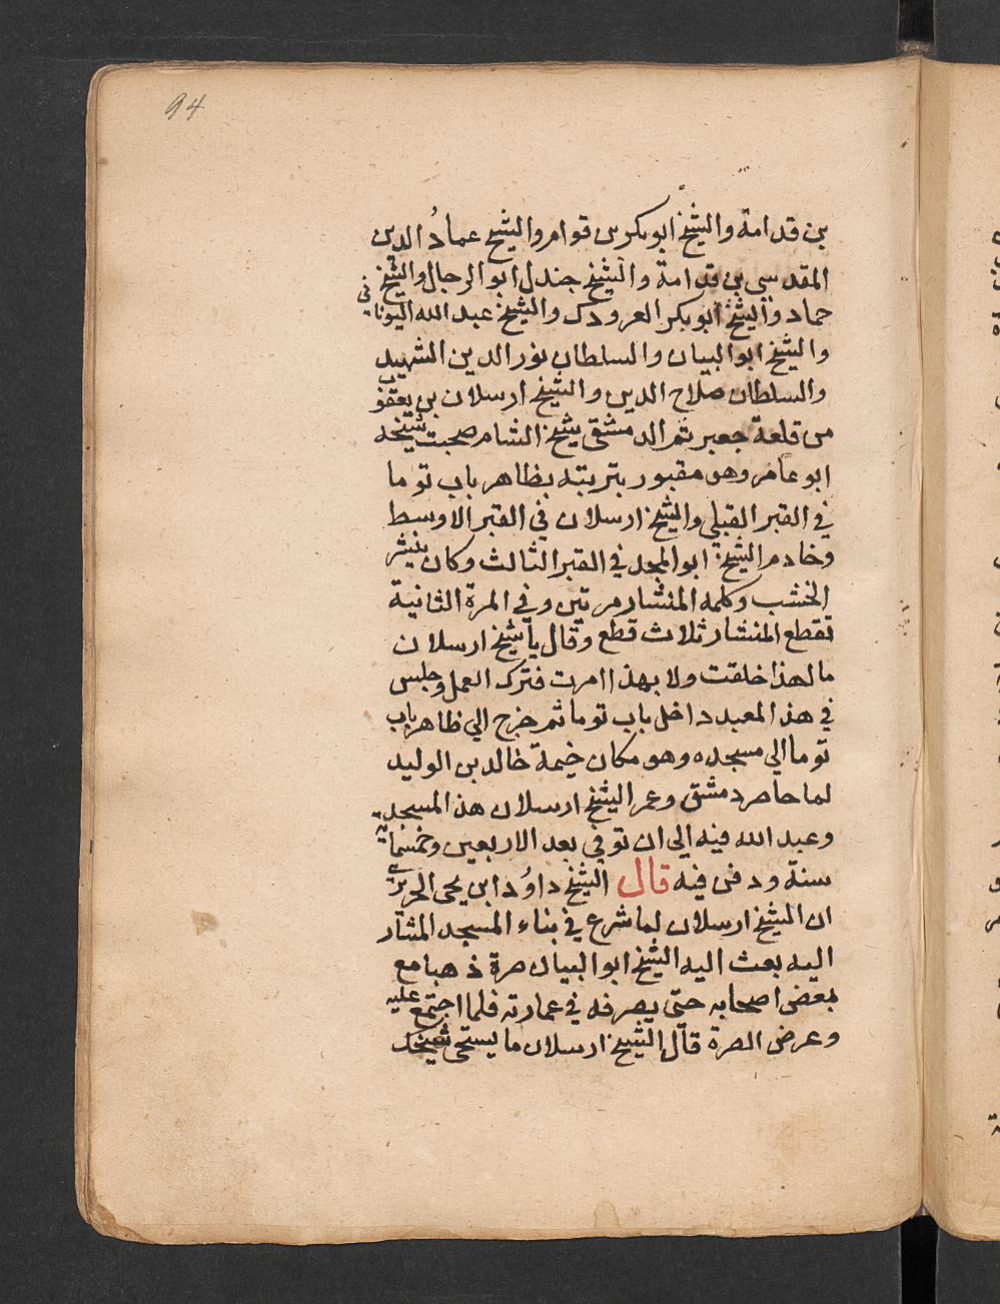 94
بن قدامة والشيخ ابو بكر بن قوام والشيخ عمادُ الدين
المقدسي بن قدامة والشيخ جندل ابو الرجال والشيخ
حماد والشيخ ابو بكر العرودك والشيخ عبد الله اليونانى
والشيخ ابو البيان والسلطان نور الدين الشهيد
والسلطان صلاح الدين والشيخ ارسلان بن يعقوب
من قلعة جعبر ثم الدمشقى شيخ الشام صحبت شيخه
ابو عامر وهو مقبور بتربته بظاهر باب توما
في القبر القبلي والشيخ ارسلان في القبر الاوسط
وخادم الشيخ ابو المجد في القبر الثالث وكان ينشر
الخشب وكلمه المنشار مرتين وفي المرة الثانية
تقطع المنشار ثلاث قطع وقال يا شيخ ارسلان
ما لهذا خلقت ولا بهذا امرت فترك العمل وجلس
في هذ المعبد داخل باب توما ثم خرج الي ظاهر باب
توما الي مسجده وهو مكان خيمة خالد بن الوليد
لما حاصر دمشق وعمر الشيخ ارسلان هذ المسجد
وعبد الله فيه الي ان توفي بعد الاربعين وخمسماية
سنة ودفن فيه قال الشيخ داوُد ابن يحى الحريري
ان الشيخ ارسلان لما شرع في بناء المسجد المشار
اليه بعث اليه الشيخ ابو البيان صرة ذهبا مع
بعض اصحابه حتى يصرفه في عمارته فلما اجتمع عليه
وعرض الصرة قال الشيخ ارسلان ما يستحى شيخك